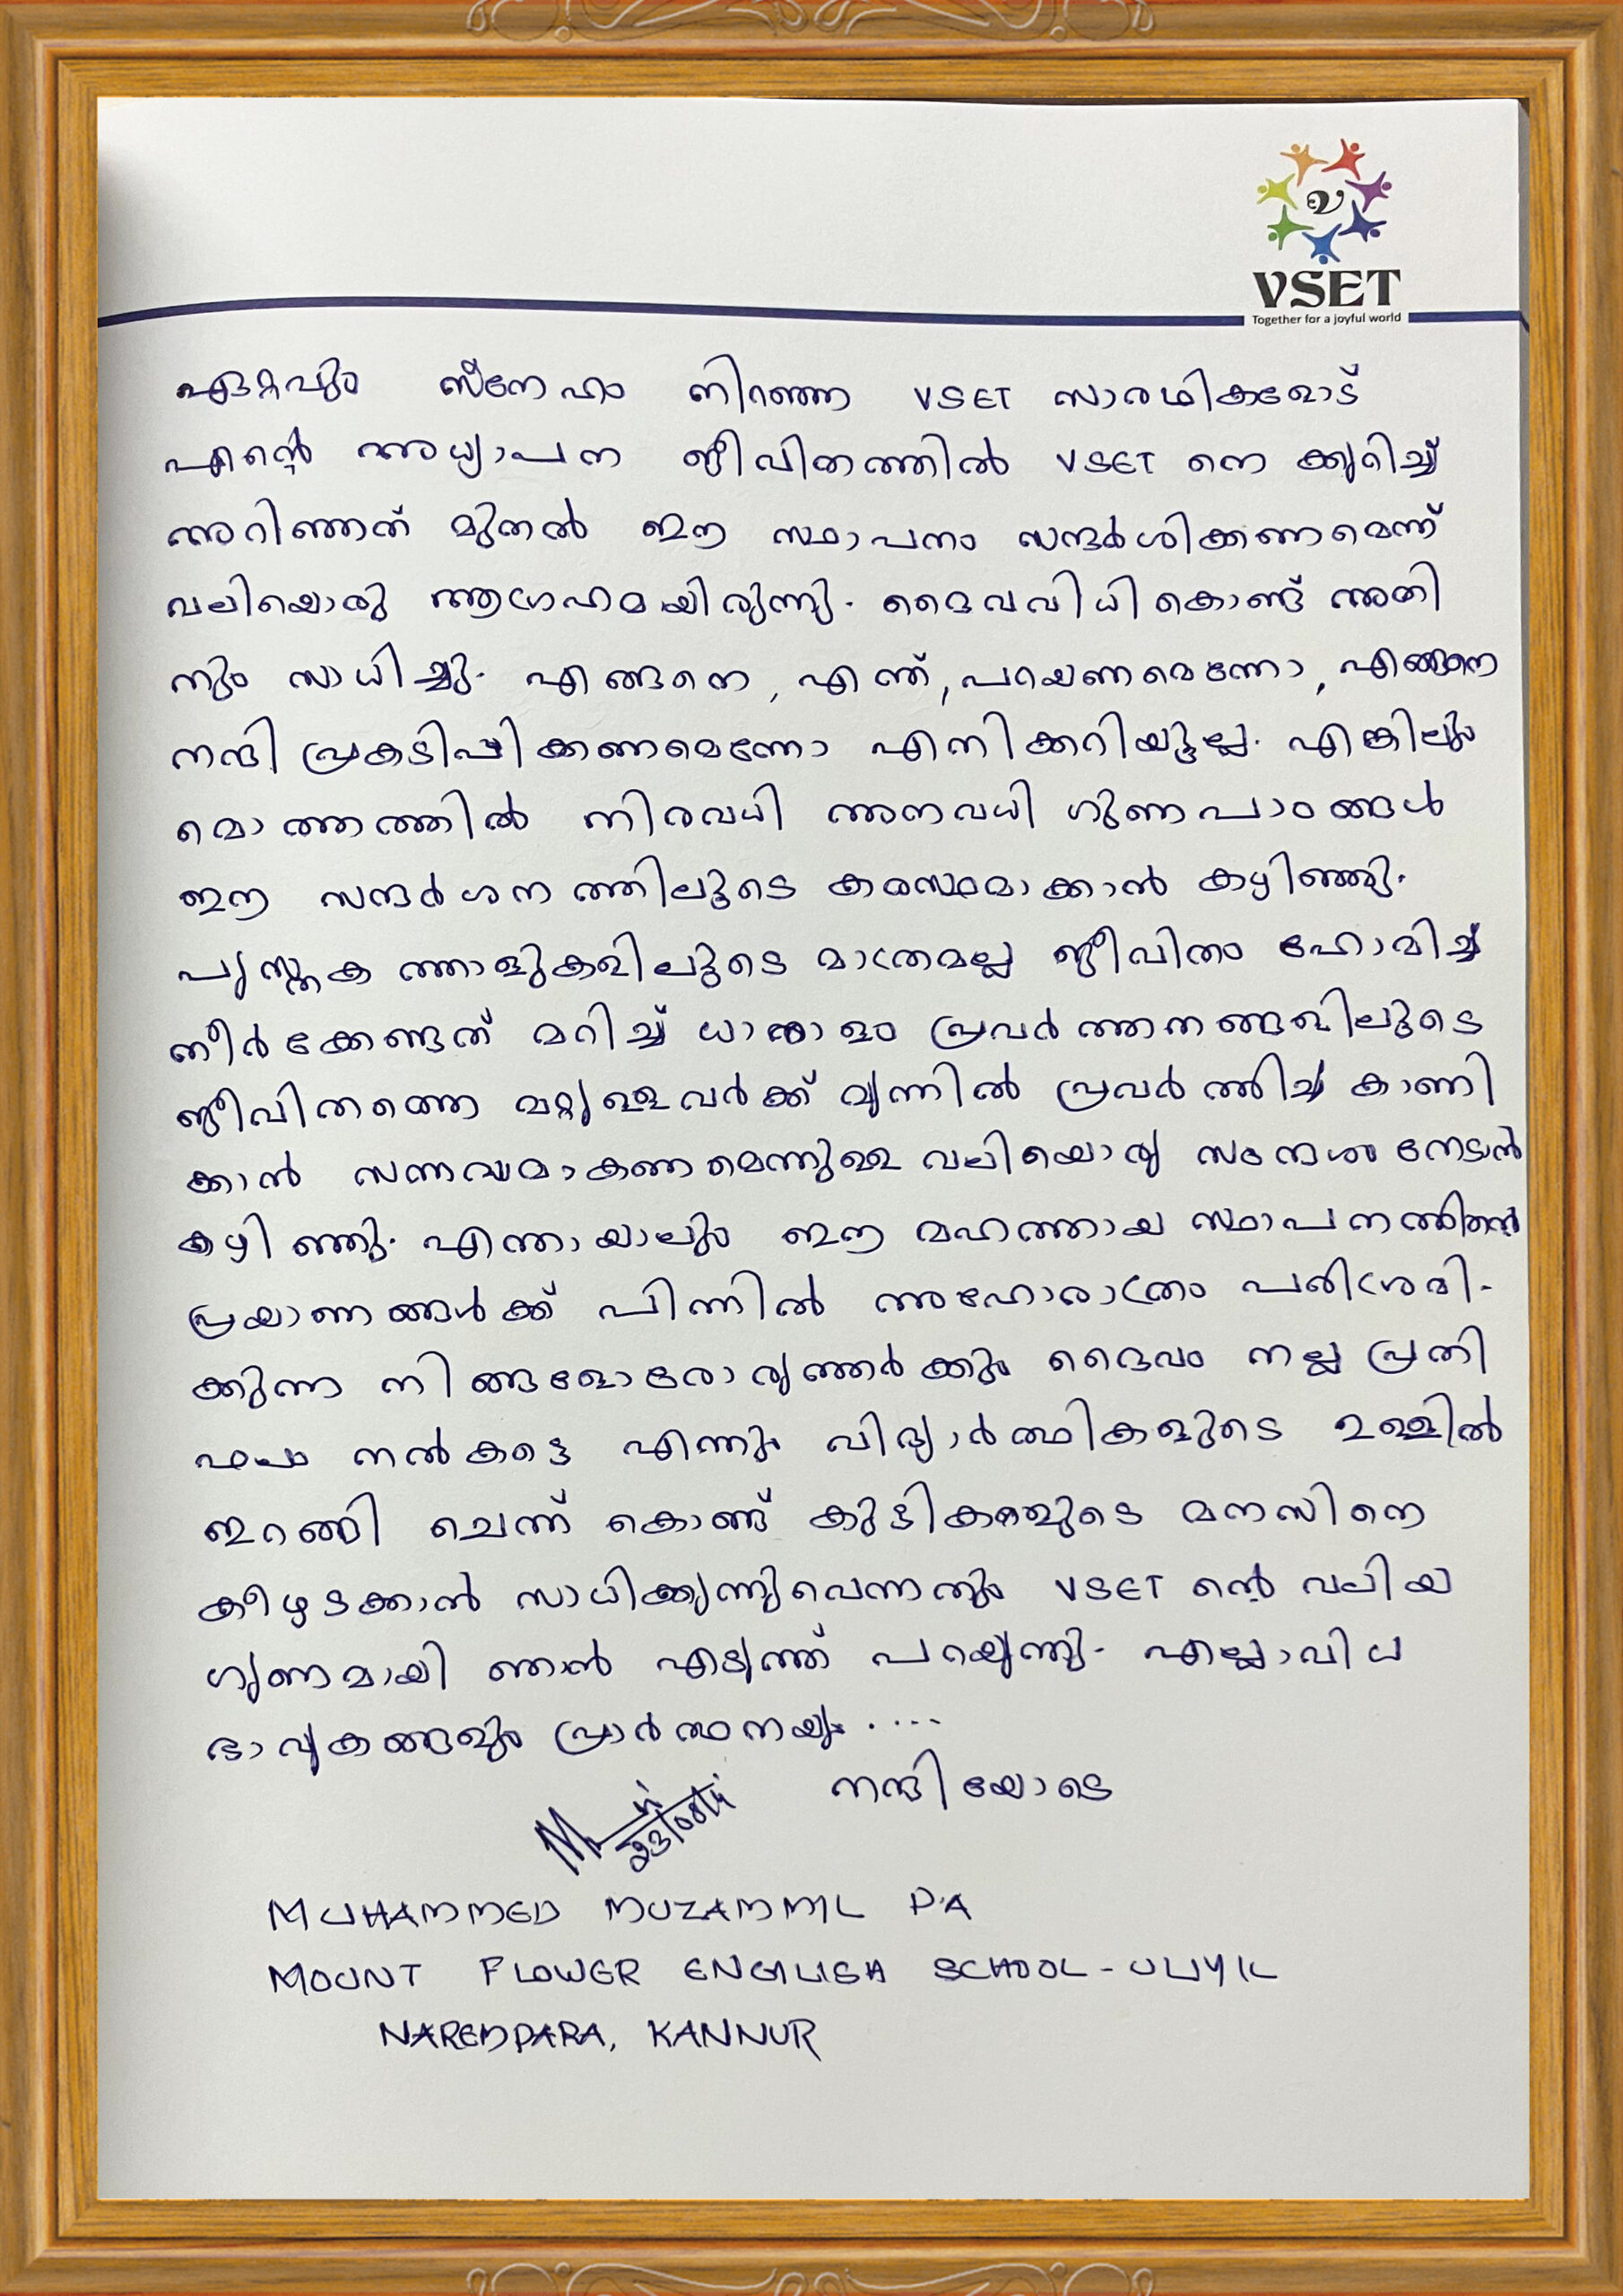 VSET
Together for a joyful world
ഏറ്റവും സ്നേഹം നിറഞ്ഞ VSET സാരഥികളോട്
എന്റെ അധ്യാപന ജീവിതത്തിൽ VSET നെ ക്കുറിച്ച്
അറിഞ്ഞത് മുതൽ ഈ സ്ഥാപനം സന്ദർശിക്കണമെന്ന്
വലിയൊരു ആഗ്രഹമയിരുന്നു. ദൈവവിധി കൊണ്ട് അതി
നും സാധിച്ചു. എങ്ങനെ, എന്ത്, പറയണമെന്നോ, എങ്ങനെ
നന്ദി പ്രകടിപ്പിക്കണമെന്നോ എനിക്കറിയൂല്ല. എങ്കിലും
മൊത്തത്തിൽ നിരവധി അനവധി ഗുണപാഠങ്ങൾ
ഈ സന്ദർശനത്തിലൂടെ കരസ്ഥമാക്കാൻ കഴിഞ്ഞു.
പുസ്തക ത്താളുകളിലൂടെ മാത്രമല്ല ജീവിതം ഹോമിച്ച്
തീർക്കേണ്ടത് മറിച്ച് ധാരാളം പ്രവർത്തനങ്ങളിലൂടെ
ജീവിതത്തെ മറ്റുള്ളവർക്ക് മുന്നിൽ പ്രവർത്തിച്ച് കാണി
ക്കാൻ സന്നദ്ധമാകണമെന്നുള്ള വലിയൊരു സന്ദേശം നേടാൻ
കഴിഞ്ഞു. എന്തായാലും ഈ മഹത്തായ സ്ഥാപനത്തിൻ
പ്രയാണങ്ങൾക്ക് പിന്നിൽ അഹോരാത്രം പരിശ്രമി-
ക്കുന്ന നിങ്ങളോരോരുത്തർക്കും ദൈവം നല്ല പ്രതി
ഫലം നൽകട്ടെ എന്നും വിദ്യാർത്ഥികളുടെ ഉള്ളിൽ
ഇറങ്ങി ചെന്ന് കൊണ്ട് കുട്ടികളുടെ മനസിനെ
കീഴടക്കാൻ സാധിക്കുന്നുവെന്നതും VSET ന്റെ വലിയ
ഗുണമായി ഞാൻ എടുത്ത് പറയുന്നു. എല്ലാവിധ
ഭാവുകങ്ങളും പ്രാർത്ഥനയും....
നന്ദിയോടെ
MUHAMMED MUZAMMIL P.A
MOUNT FLOWER ENGLISH SCHOOL - ULIYIL
NARENPARA, KANNUR